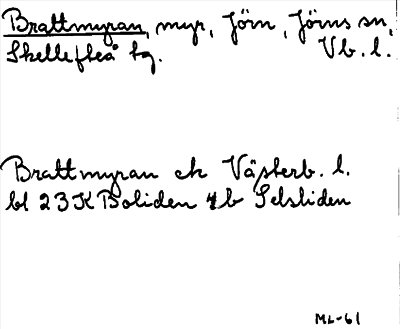 Brattmyran, myr, Jörn, Jörns sn,
Skellefteå tg. Vb. l.
Brattmyran ek Västerb. l.
bl 23K Boliden 4b Selsliden
ML-61